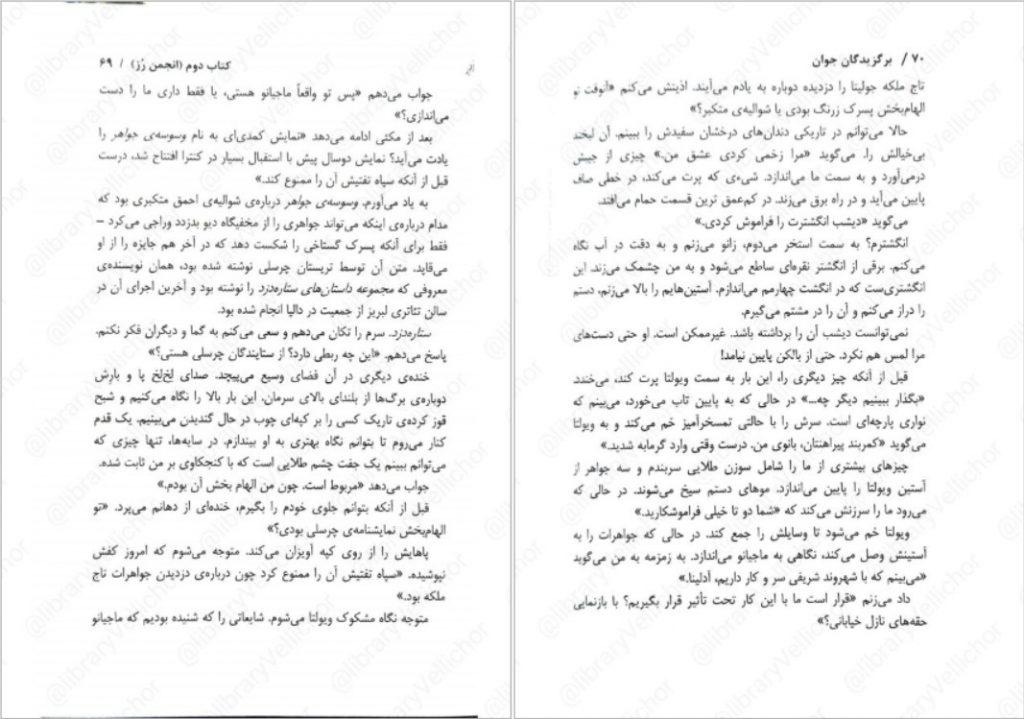 کتاب دوم (انجمن رُز) / ۶۹
جواب می‌دهم «پس تو واقعاً ماجیانو هستی، یا فقط داری ما را دست
می‌اندازی؟»
بعد از مکثی ادامه می‌دهد «نمایش کمدی‌ای به نام وسوسه‌ی جواهر را
یادت می‌آید؟ نمایش دوسال پیش با استقبال بسیار در کنترا افتتاح شد، درست
قبل از آنکه سپاه تفتیش آن را ممنوع کند.»
به یاد می‌آورم. وسوسه‌ی جواهر درباره‌ی شوالیه‌ی احمق متکبری بود که
مدام درباره‌ی اینکه می‌تواند جواهری را از مخفیگاه دیو بدزدد وراجی می‌کرد –
فقط برای آنکه پسرک گستاخی را شکست دهد که در آخر هم جایزه را از او
می‌قاپد. متن آن توسط تریستان چرسلی نوشته شده بود، همان نویسنده‌ی
معروفی که مجموعه داستان‌های ستاره‌دزد را نوشته بود و آخرین اجرای آن در
سالن تئاتری لبریز از جمعیت در دالیا انجام شده بود.
ستاره‌دزد. سرم را تکان می‌دهم و سعی می‌کنم به گما و دیگران فکر نکنم.
پاسخ می‌دهم. «این چه ربطی دارد؟ از ستایندگان چرسلی هستی؟»
خنده‌ی دیگری در آن فضای وسیع می‌پیچد. صدای لِخ‌لِخ پا و بارِش
دوباره‌ی برگ‌ها از بلندای بالای سرمان. این بار بالا را نگاه می‌کنیم و شبح
قوز کرده‌ی تاریک کسی را بر کپه‌ای چوب در حال گندیدن می‌بینیم. یک قدم
کنار می‌روم تا بتوانم نگاه بهتری به او بیندازم. در سایه‌ها، تنها چیزی که
می‌توانم ببینم یک جفت چشم طلایی است که با کنجکاوی بر من ثابت شده.
جواب می‌دهد «مربوط است. چون من الهام بخش آن بودم.»
قبل از آنکه بتوانم جلوی خودم را بگیرم، خنده‌ای از دهانم می‌پرد. «تو
الهام‌بخش نمایشنامه‌ی چرسلی بودی؟»
پاهایش را از روی کپه آویزان می‌کند. متوجه می‌شوم که امروز کفش
نپوشیده. «سپاه تفتیش آن را ممنوع کرد چون درباره‌ی دزدیدن جواهرات تاج
ملکه بود.»
متوجه نگاه مشکوک ویولتا می‌شوم. شایعاتی را که شنیده بودیم که ماجیانو
۷۰ / برگزیدگان جوان
تاج ملکه جولیتا را دزدیده دوباره به یادم می‌آیند. اذیتش می‌کنم «آنوقت تو
الهام‌بخش پسرک زرنگ بودی یا شوالیه‌ی متکبر؟»
حالا می‌توانم در تاریکی دندان‌های درخشان سفیدش را ببینم. آن لبخند
بی‌خیالش را. می‌گوید «مرا زخمی کردی عشق من.» چیزی از جیبش
درمی‌آورد و به سمت ما می‌اندازد. شیءی که پرت می‌کند، در خطی صاف
پایین می‌آید و در راه برق می‌زند. در کم‌عمق ترین قسمت حمام می‌افتد.
می‌گوید «دیشب انگشترت را فراموش کردی.»
انگشترم؟ به سمت استخر می‌دوم، زانو می‌زنم و به دقت در آب نگاه
می‌کنم. برقی از انگشتر نقره‌ای ساطع می‌شود و به من چشمک می‌زند. این
انگشتری‌ست که در انگشت چهارمم می‌اندازم. آستین‌هایم را بالا می‌زنم، دستم
را دراز می‌کنم و آن را در مشتم می‌گیرم.
نمی‌توانست دیشب آن را برداشته باشد. غیرممکن است. او حتی دست‌های
مرا لمس هم نکرد. حتی از بالکن پایین نیامد!
قبل از آنکه چیز دیگری را، این بار به سمت ویولتا پرت کند، می‌خندد.
«بگذار ببینیم دیگر چه...» در حالی که به پایین تاب می‌خورد، می‌بینم که
نواری پارچه‌ای است. سرش را با حالتی تمسخرآمیز خم می‌کند و به ویولتا
می‌گوید «کمربند پیراهنتان، بانوی من. درست وقتی وارد گرمابه شدید.»
چیزهای بیشتری از ما را شامل سوزن طلایی سربندم و سه جواهر از
آستین ویولتا را پایین می‌اندازد. موهای دستم سیخ می‌شوند. در حالی که
می‌رود ما را سرزنش می‌کند که «شما دو تا خیلی فراموشکارید.»
ویولتا خم می‌شود تا وسایلش را جمع کند. در حالی که جواهرات را به
آستینش وصل می‌کند، نگاهی به ماجیانو می‌اندازد. به زمزمه به من می‌گوید
«می‌بینم که با شهروند شریفی سر و کار داریم، آدلینا.»
داد می‌زنم «قرار است ما با این کار تحت تأثیر قرار بگیریم؟ با بازنمایی
حقه‌های نازل خیابانی؟»
@libraryVellichor